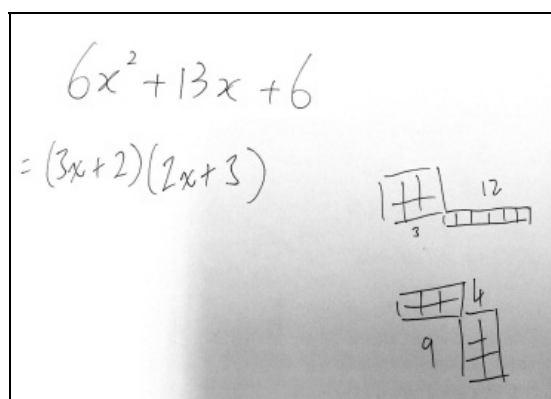 6x² + 13x + 6
= (3x + 2)(2x + 3)
12
3
4
9